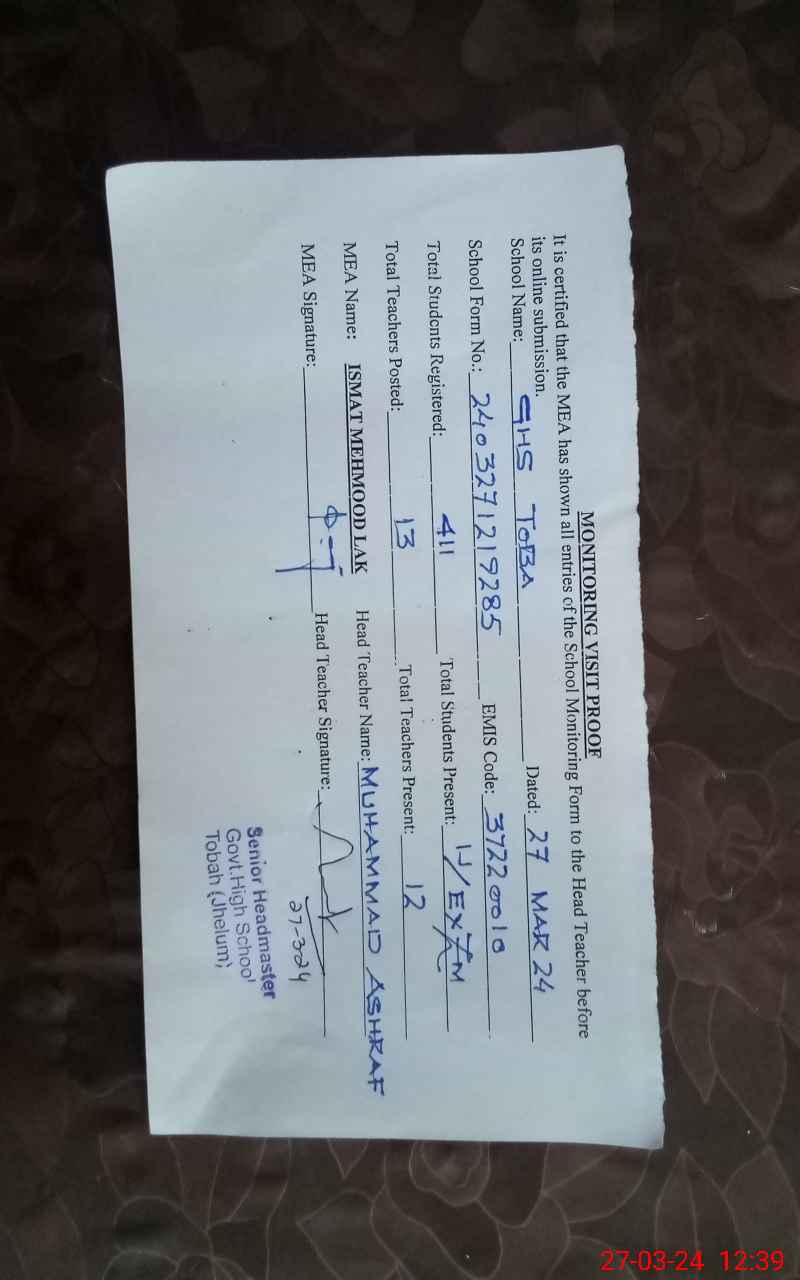 MONITORING VISIT PROOF
It is certified that the MEA has shown all entries of the School Monitoring Form to the Head Teacher before
its online submission.
School Name: GHS TOBA Dated: 27 MAR 24
School Form No.: 2403271219285 EMIS Code: 37220010
Total Students Registered: 411 Total Students Present: EXAM
Total Teachers Posted: 13 Total Teachers Present: 12
MEA Name: ISMAT MEHMOOD LAK Head Teacher Name: MUHAMMAD ASHRAF
MEA Signature: Head Teacher Signature:
27-3-24
Senior Headmaster
Govt.High School
Tobah (Jhelum)
27-03-24 12:39